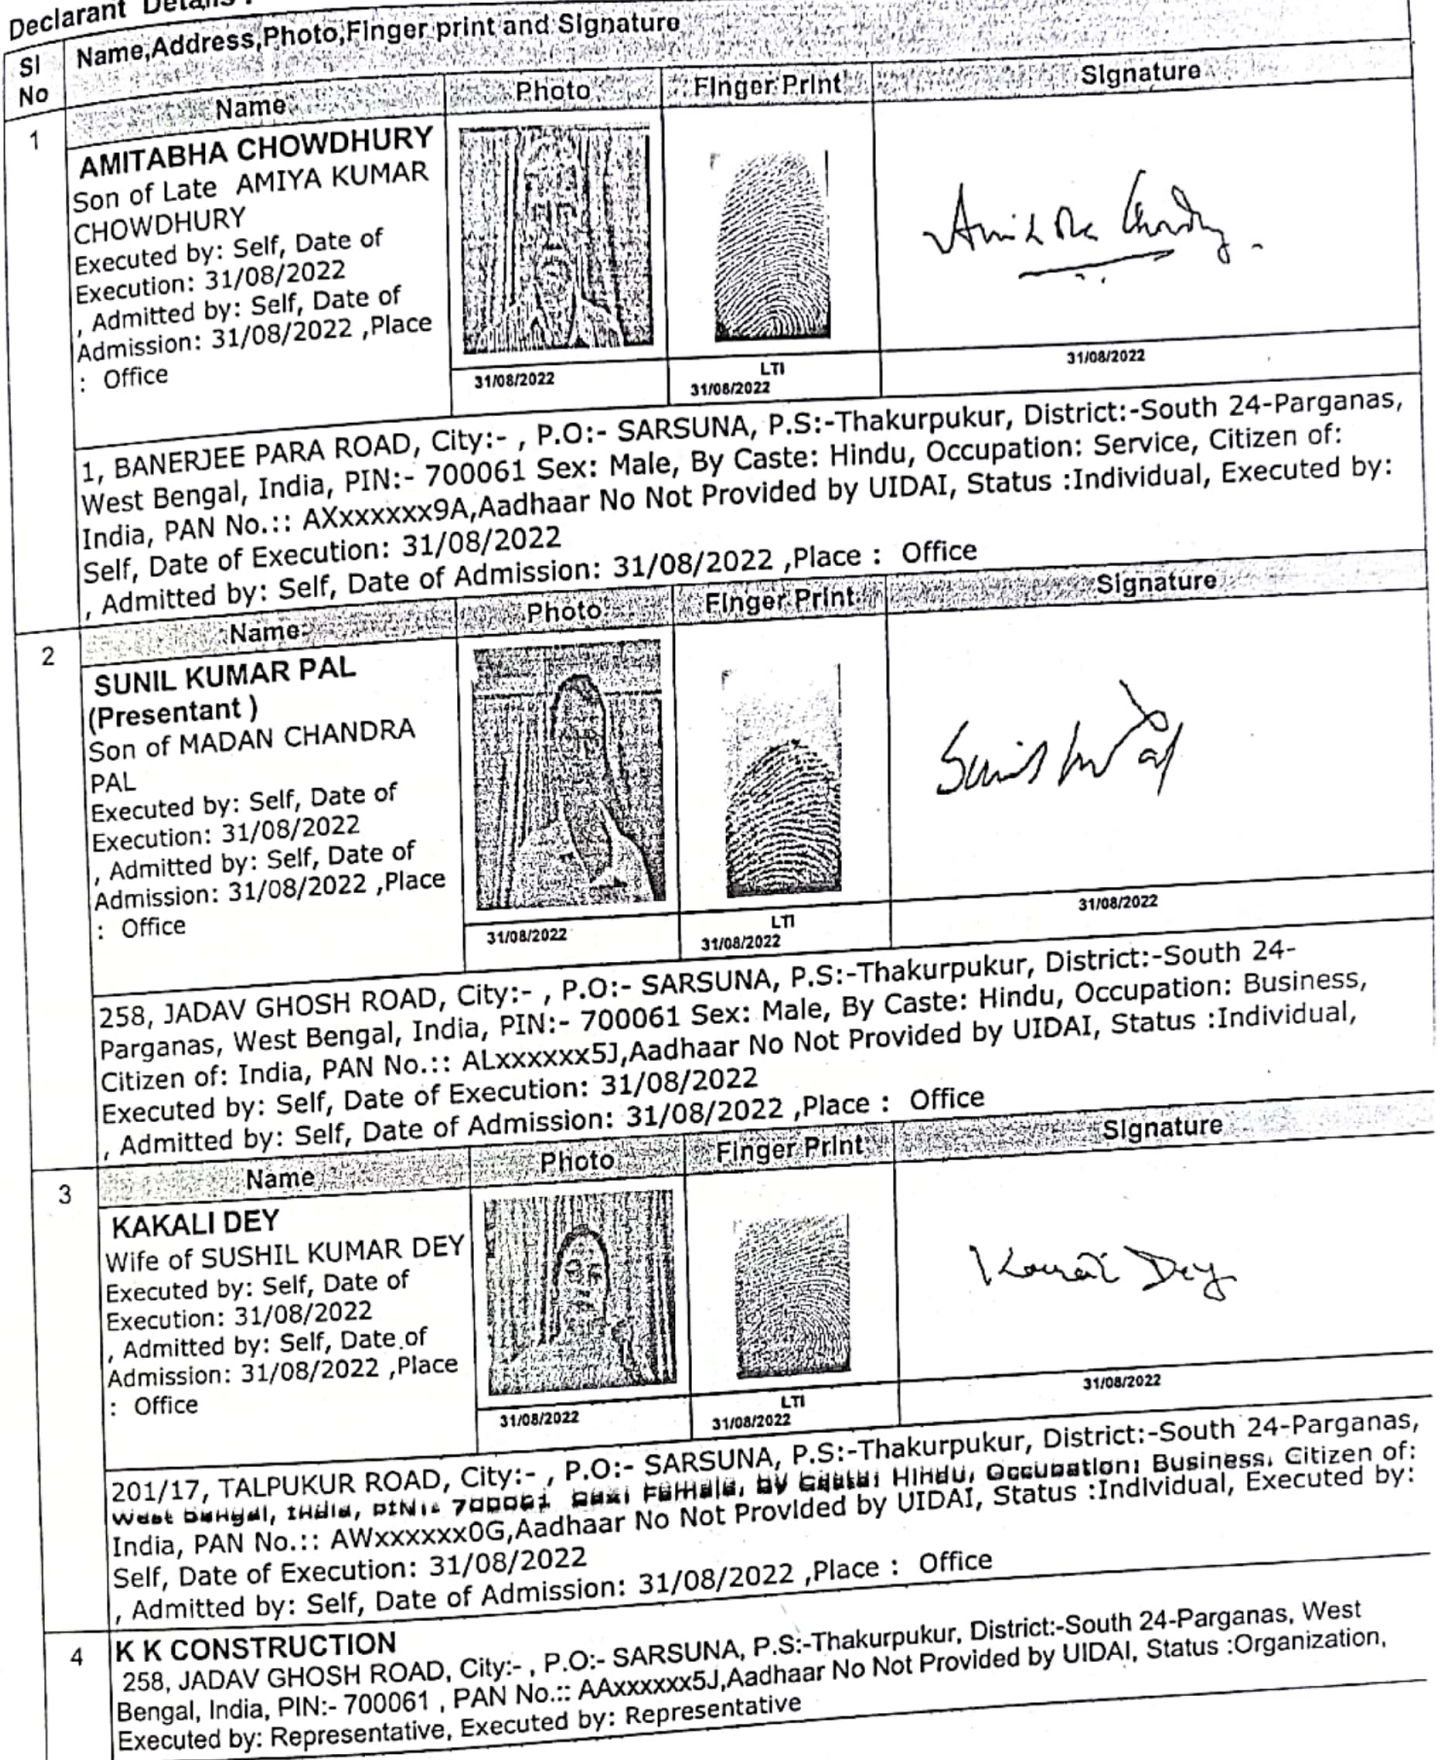 Declarant Details :
Sl No
Name,Address,Photo,Finger print and Signature
1
Name
Photo
Finger Print
Signature
AMITABHA CHOWDHURY
Son of Late AMIYA KUMAR
CHOWDHURY
Executed by: Self, Date of
Execution: 31/08/2022
, Admitted by: Self, Date of
Admission: 31/08/2022 ,Place
: Office
31/08/2022
LTI
31/08/2022
31/08/2022
1, BANERJEE PARA ROAD, City:- , P.O:- SARSUNA, P.S:-Thakurpukur, District:-South 24-Parganas,
West Bengal, India, PIN:- 700061 Sex: Male, By Caste: Hindu, Occupation: Service, Citizen of:
India, PAN No.:: AXxxxxxx9A,Aadhaar No Not Provided by UIDAI, Status :Individual, Executed by:
Self, Date of Execution: 31/08/2022
, Admitted by: Self, Date of Admission: 31/08/2022 ,Place : Office
2
Name
Photo
Finger Print
Signature
SUNIL KUMAR PAL
(Presentant )
Son of MADAN CHANDRA
PAL
Executed by: Self, Date of
Execution: 31/08/2022
, Admitted by: Self, Date of
Admission: 31/08/2022 ,Place
: Office
31/08/2022
LTI
31/08/2022
31/08/2022
258, JADAV GHOSH ROAD, City:- , P.O:- SARSUNA, P.S:-Thakurpukur, District:-South 24-
Parganas, West Bengal, India, PIN:- 700061 Sex: Male, By Caste: Hindu, Occupation: Business,
Citizen of: India, PAN No.:: ALxxxxxx5J,Aadhaar No Not Provided by UIDAI, Status :Individual,
Executed by: Self, Date of Execution: 31/08/2022
, Admitted by: Self, Date of Admission: 31/08/2022 ,Place : Office
3
Name
Photo
Finger Print
Signature
KAKALI DEY
Wife of SUSHIL KUMAR DEY
Executed by: Self, Date of
Execution: 31/08/2022
, Admitted by: Self, Date of
Admission: 31/08/2022 ,Place
: Office
Dey
31/08/2022
LTI
31/08/2022
31/08/2022
201/17, TALPUKUR ROAD, City:- , P.O:- SARSUNA, P.S:-Thakurpukur, District:-South 24-Parganas,
West Bengal, India, PIN:- 700061 Sex: Female, By Caste: Hindu, Occupation: Business, Citizen of:
India, PAN No.:: AWxxxxxx0G,Aadhaar No Not Provided by UIDAI, Status :Individual, Executed by:
Self, Date of Execution: 31/08/2022
, Admitted by: Self, Date of Admission: 31/08/2022 ,Place : Office
4
K K CONSTRUCTION
258, JADAV GHOSH ROAD, City:- , P.O:- SARSUNA, P.S:-Thakurpukur, District:-South 24-Parganas, West
Bengal, India, PIN:- 700061 , PAN No.:: AAxxxxxx5J,Aadhaar No Not Provided by UIDAI, Status :Organization,
Executed by: Representative, Executed by: Representative